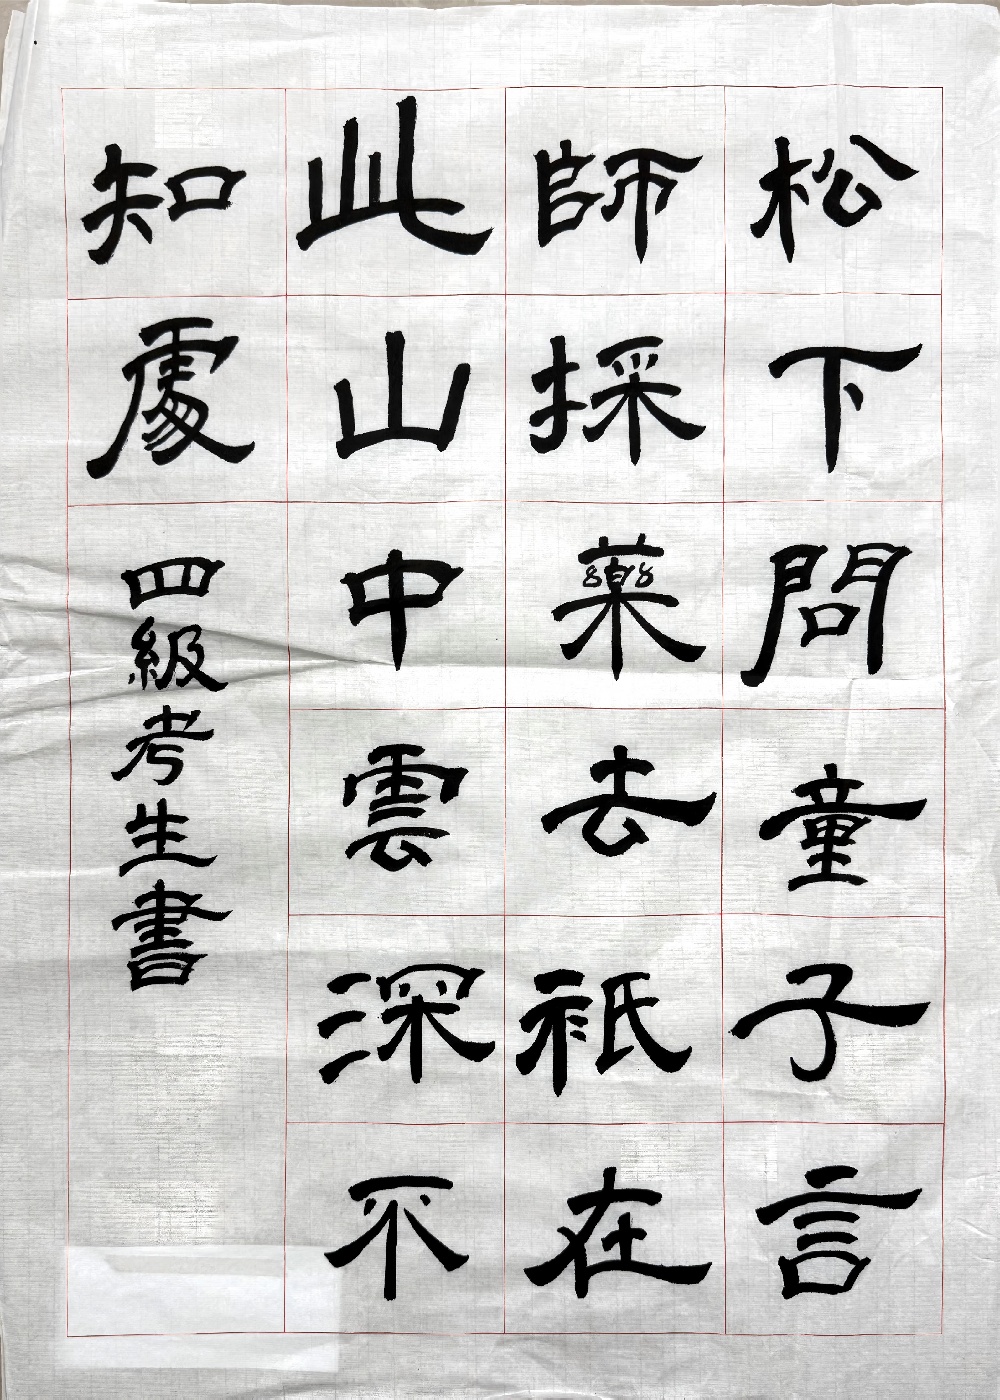 松下問童子言
師採藥去祇在
此山中雲深不
知處
四級考生書